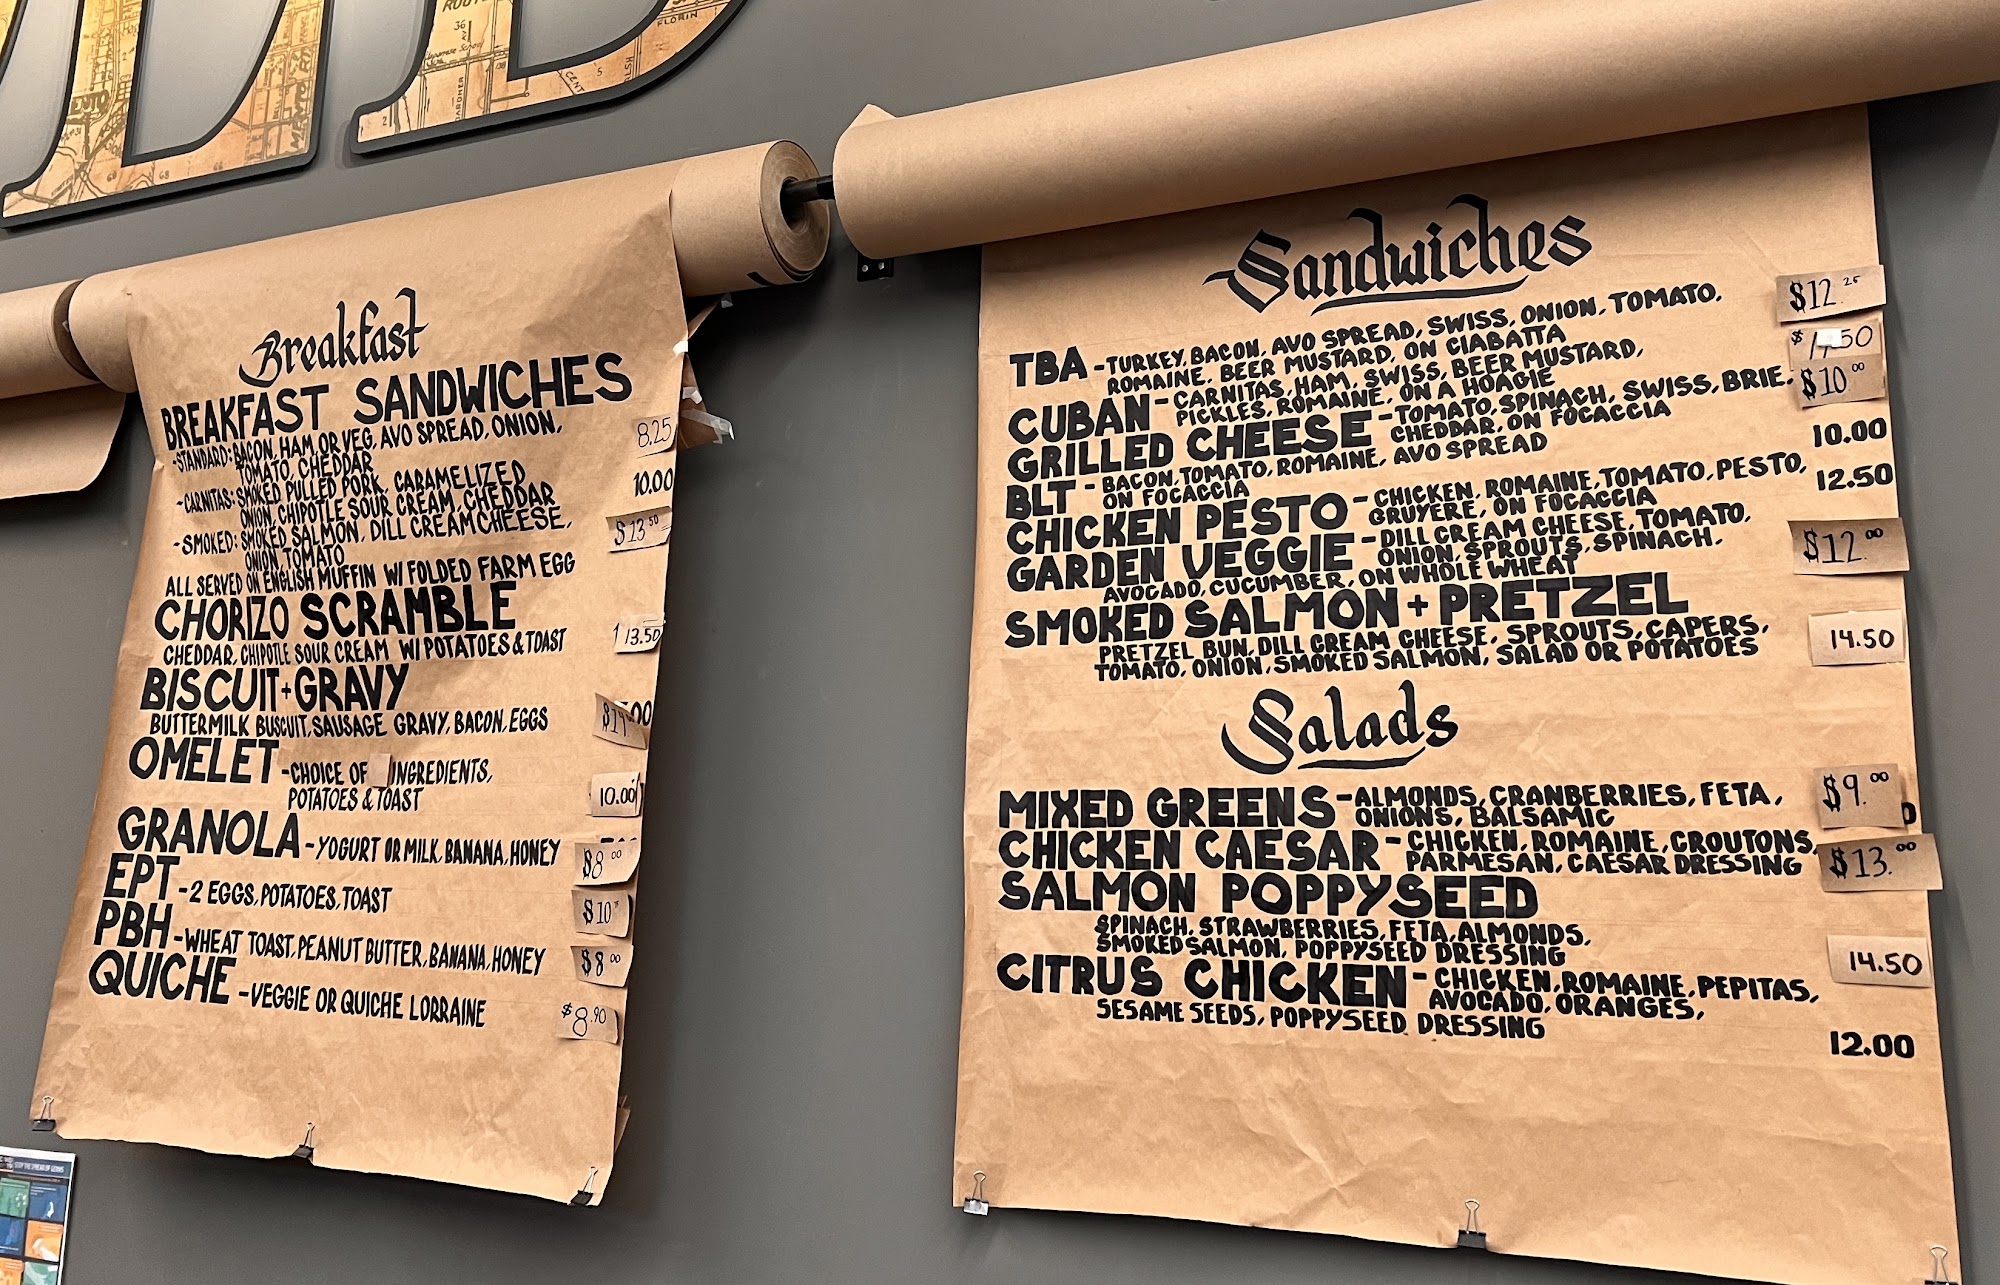 ROUTE
36
FLORIN
Breakfast
BREAKFAST SANDWICHES
-STANDARD: BACON, HAM OR VEG, AVO SPREAD, ONION,
TOMATO, CHEDDAR 8.25
-CARNITAS: SMOKED PULLED PORK, CARAMELIZED
ONION, CHIPOTLE SOUR CREAM, CHEDDAR 10.00
-SMOKED: SMOKED SALMON, DILL CREAM CHEESE,
ONION, TOMATO $13.50
ALL SERVED ON ENGLISH MUFFIN W/ FOLDED FARM EGG
CHORIZO SCRAMBLE
CHEDDAR, CHIPOTLE SOUR CREAM W/ POTATOES & TOAST 13.50
BISCUIT + GRAVY
BUTTERMILK BUSCUIT, SAUSAGE GRAVY, BACON, EGGS
OMELET -CHOICE OF INGREDIENTS,
POTATOES & TOAST 10.00
GRANOLA -YOGURT OR MILK, BANANA, HONEY $8.00
EPT -2 EGGS, POTATOES, TOAST $10
PBH -WHEAT TOAST, PEANUT BUTTER, BANANA, HONEY $8.00
QUICHE -VEGGIE OR QUICHE LORRAINE $8.90
Sandwiches
TBA -TURKEY, BACON, AVO SPREAD, SWISS, ONION, TOMATO, $12.25
ROMAINE, BEER MUSTARD, ON CIABATTA
CUBAN -CARNITAS, HAM, SWISS, BEER MUSTARD,
PICKLES, ROMAINE, ON A HOAGIE
GRILLED CHEESE -TOMATO, SPINACH, SWISS, BRIE, $10.00
CHEDDAR, ON FOCACCIA
BLT -BACON, TOMATO, ROMAINE, AVO SPREAD 10.00
ON FOCACCIA
CHICKEN PESTO -CHICKEN, ROMAINE, TOMATO, PESTO, 12.50
GRUYERE, ON FOCACCIA
GARDEN VEGGIE -DILL CREAM CHEESE, TOMATO, $12.00
ONION, SPROUTS, SPINACH,
AVOCADO, CUCUMBER, ON WHOLE WHEAT
SMOKED SALMON + PRETZEL
PRETZEL BUN, DILL CREAM CHEESE, SPROUTS, CAPERS, 14.50
TOMATO, ONION, SMOKED SALMON, SALAD OR POTATOES
Salads
MIXED GREENS -ALMONDS, CRANBERRIES, FETA, $9.00
ONIONS, BALSAMIC
CHICKEN CAESAR -CHICKEN, ROMAINE, CROUTONS, $13.00
PARMESAN, CAESAR DRESSING
SALMON POPPYSEED
SPINACH, STRAWBERRIES, FETA, ALMONDS,
SMOKED SALMON, POPPYSEED DRESSING 14.50
CITRUS CHICKEN -CHICKEN, ROMAINE, PEPITAS,
AVOCADO, ORANGES,
SESAME SEEDS, POPPYSEED DRESSING 12.00
STOP THE SPREAD OF GERMS